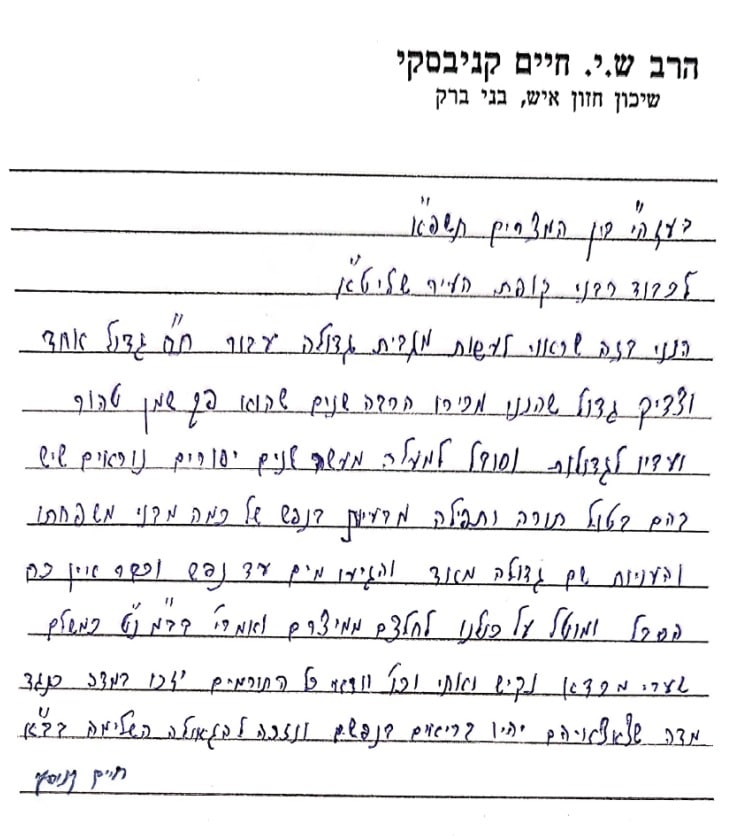 הרב ש.י. חיים קניבסקי
שיכון חזון איש, בני ברק
בעזהי" בין המצרים תשפ"א
לכבוד רבני קופת העיר שליט"א
הנני בזה שראוי לעשות מגבית גדולה עבור ת"ח גדול אחד
וצדיק גדול שהננו מכירו הרבה שנים שהוא פך שמן טהור
ועדיו לגדולות וסובל למעלה מעשר שנים יסורים נוראים שיש
בהם בטול תורה ותפילה מרעיון בנפש של כמה מבני משפחתו
והעניות שם גדולה מאוד והגיעו מים עד נפש וכבר אין כח
הסבל ומוטל על כולנו לחלצם ממיצרם ואמרי' בב"מ נ"ט כמשלם
שערי מכדא נקיש ואתי וכו' וודאי כל התורמים יזכו במדה כנגד
מדה שצאצאיהם יהיו בריאים בנפשם ונזכה להגאולה השלימה בב"א
חיים קניבסקי